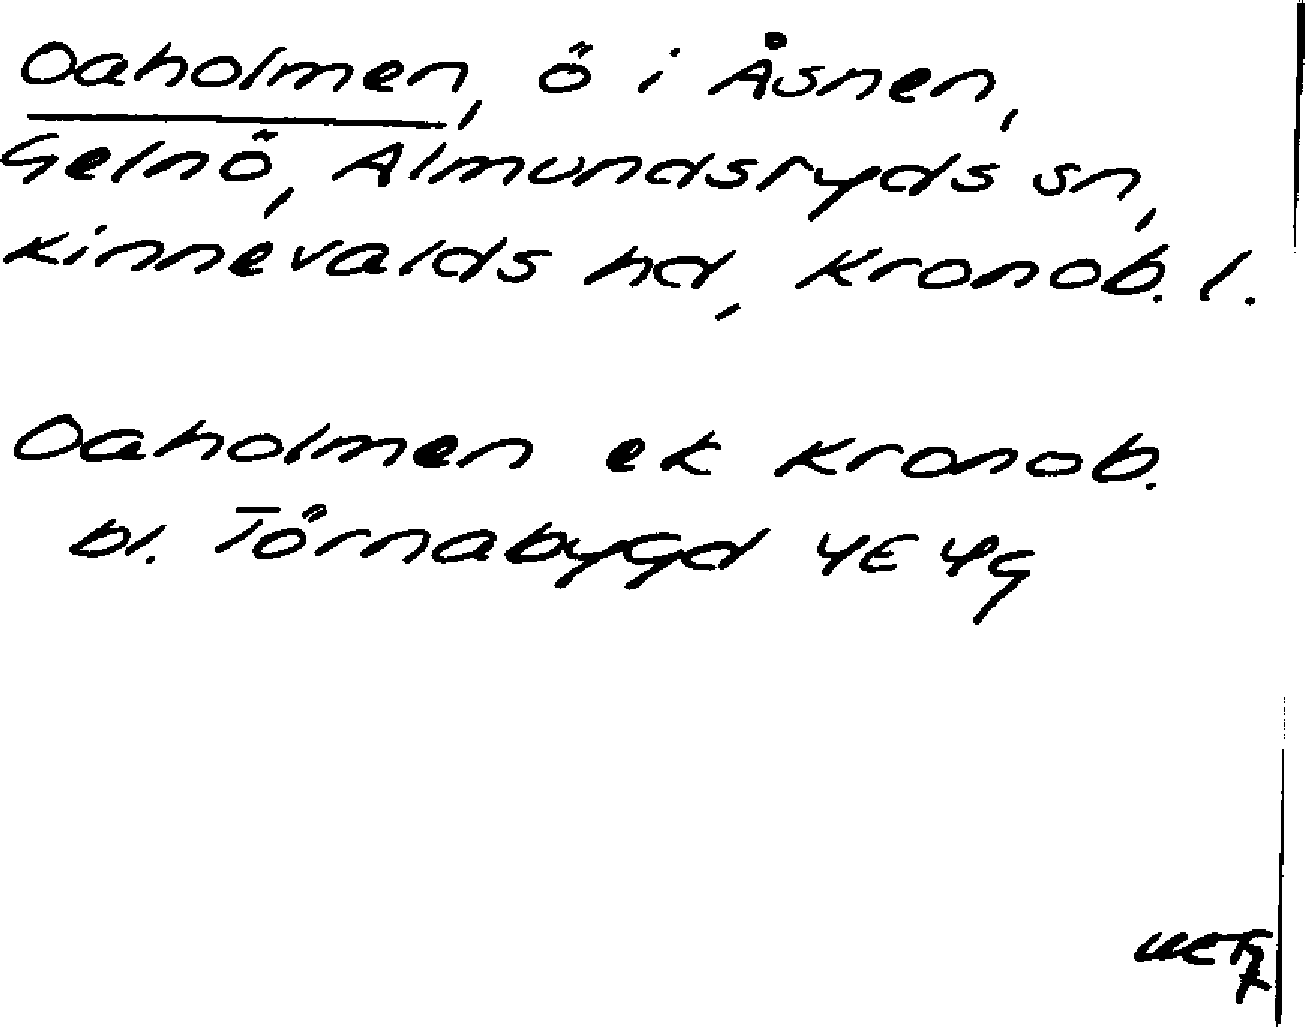 Oaholmen, ö i Åsnen,
Gelnö, Almundsryds sn,
Kinnevalds hd, Kronob. l.
Oaholmen ek Kronob.
bl. Törnabygd 4E 4g